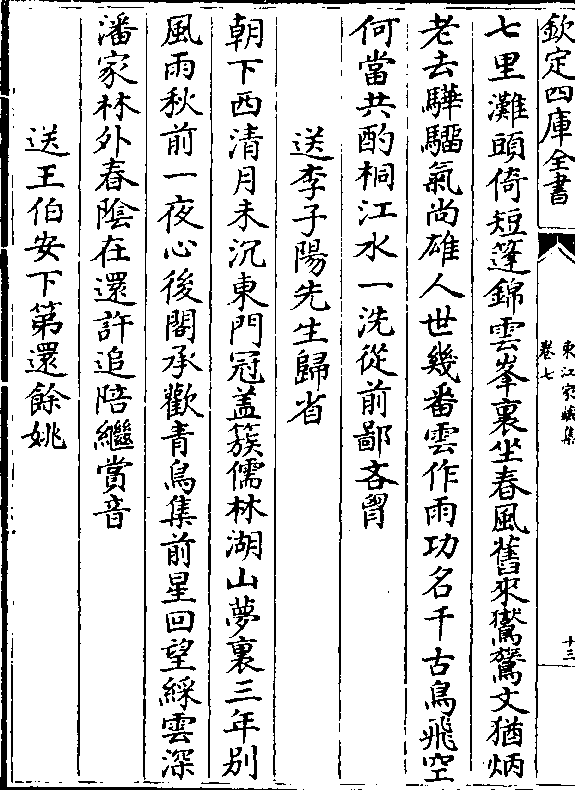 欽定四庫全書
東江家藏集
卷七
十三
七里灘頭倚短篷錦雲峯裏坐春風舊來鸑鷟文猶炳
老去驊騮氣尚雄人世幾番雲作雨功名千古鳥飛空
何當共酌桐江水一洗從前鄙吝胷
送李子陽先生歸省
朝下西清月未沉東門冠盖簇儒林湖山夢裏三年别
風雨秋前一夜心後閣承歡青鳥集前星回望綵雲深
潘家林外春陰在還許追陪繼賞音
送王伯安下第還餘姚